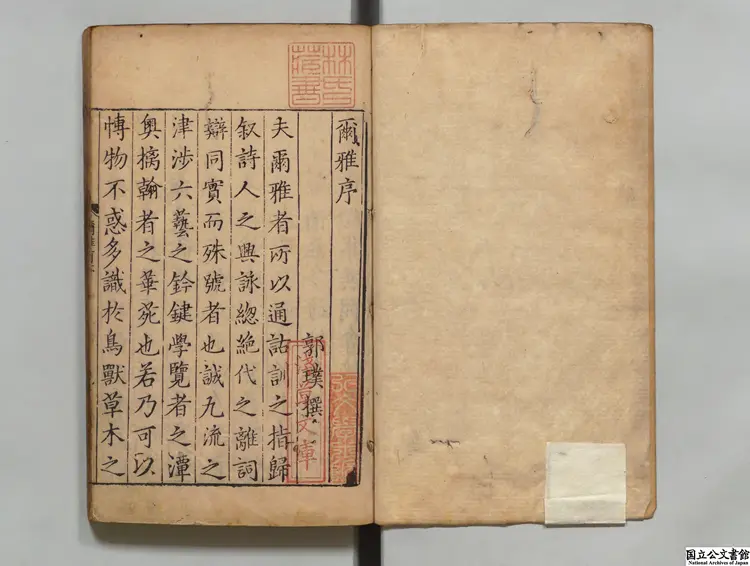 爾雅序
郭璞撰
夫爾雅者所以通詁訓之指歸
叙詩人之興詠緫絶代之離詞
辯同實而殊號者也誠九流之
津涉六藝之鈐鍵學覽者之潭
奥摛翰者之華苑也若乃可以
愽物不惑多識於鳥獸草木之
國立公文書館
National Archives of Japan